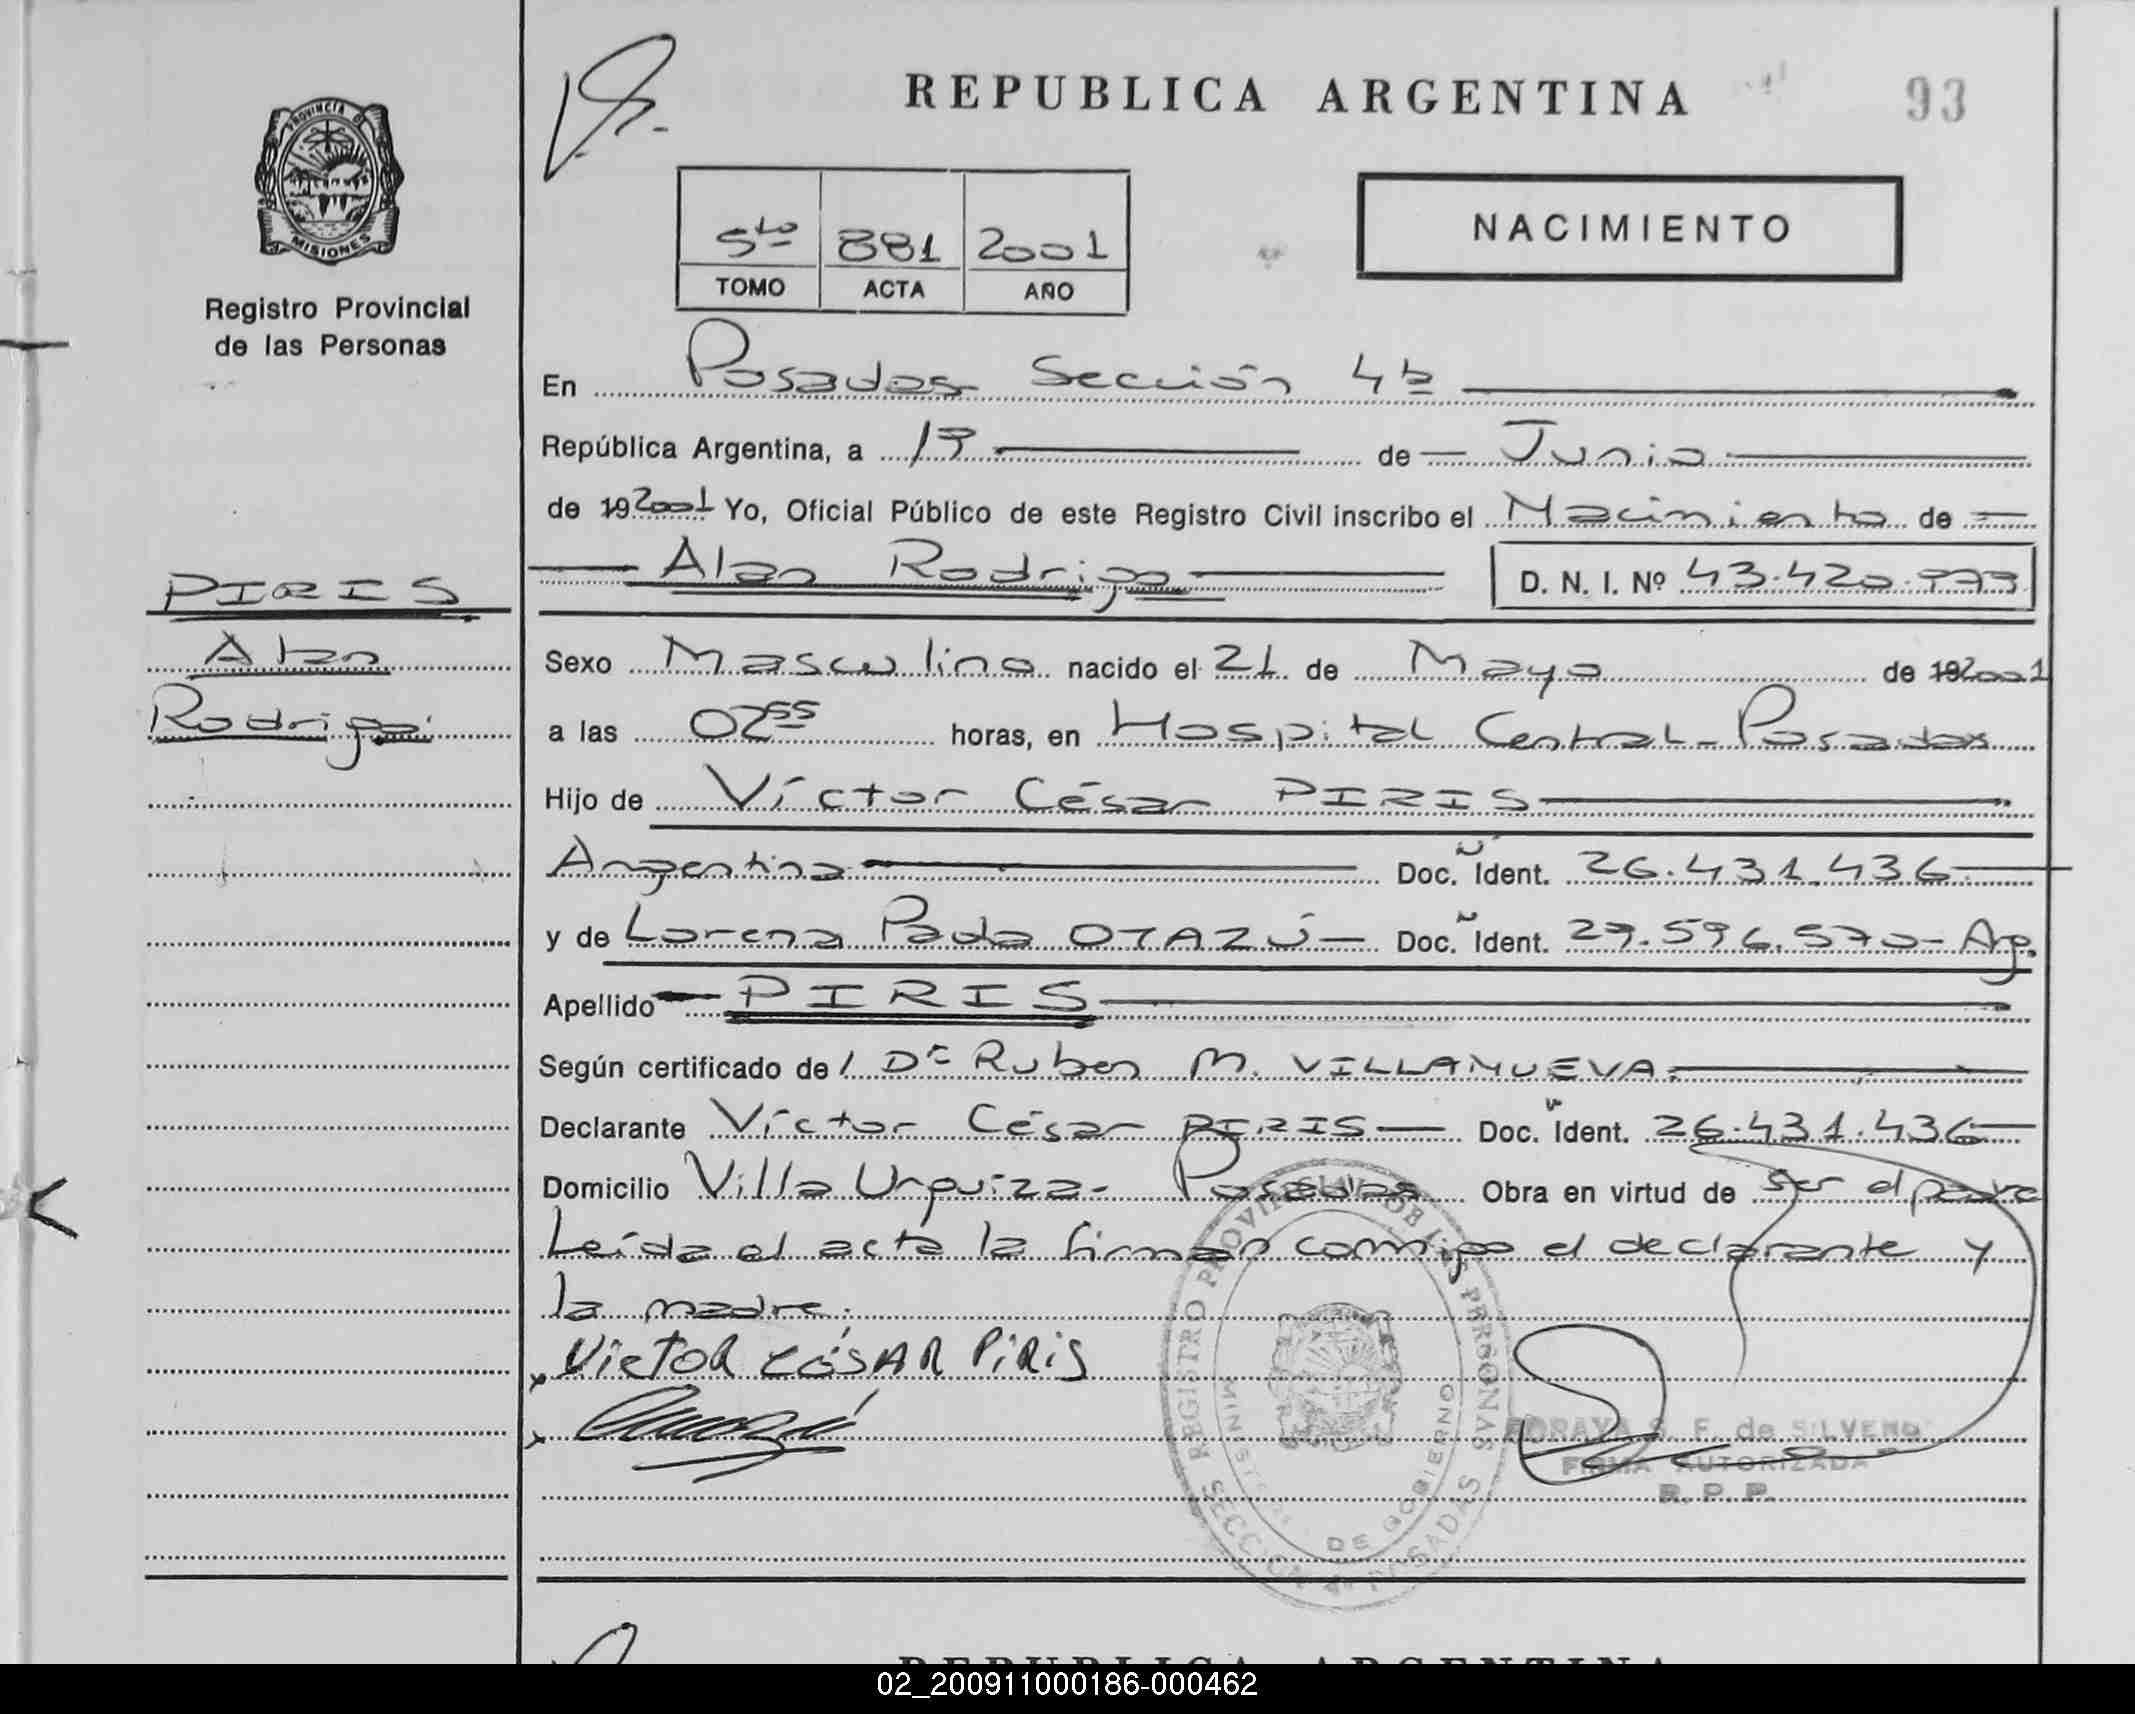 REPUBLICA ARGENTINA
93
PROVINCIA DE
MISIONES
Registro Provincial
de las Personas
5to 881 2001
TOMO ACTA AÑO
NACIMIENTO
En Posadas Sección 4ta
República Argentina, a 19 de Junio
de 19 2001 Yo, Oficial Público de este Registro Civil inscribo el Nacimiento de
Alan Rodrigo D. N. I. Nº 43.420.973
PIRIS
Alan
Rodrigo
Sexo Masculino nacido el 21 de Mayo de 19 2001
a las 02 55 horas, en Hospital Central - Posadas
Hijo de Víctor César PIRIS
Argentina Doc. Ñ Ident. 26.431.436
y de Lorena Paola OTAZÚ Doc. Ñ Ident. 27.596.570 - Arg.
Apellido PIRIS
Según certificado de / Dr Ruben M. VILLANUEVA.
Declarante Víctor César PIRIS Doc. Ident. 26.431.436
Domicilio Villa Urquiza - Posadas Obra en virtud de ser el padre
Leída el acta la firman conmigo el declarante y
la madre.
x VICTOR CÉSAR PIRIS
x
REGISTRO PROVINCIAL DE LAS PERSONAS
MINISTERIO DE GOBIERNO
SECCION 4ª POSADAS
SORAYA S. F. de SILVERO
FIRMA AUTORIZADA
R. P. P.
REPUBLICA ARGENTINA
02_200911000186-000462